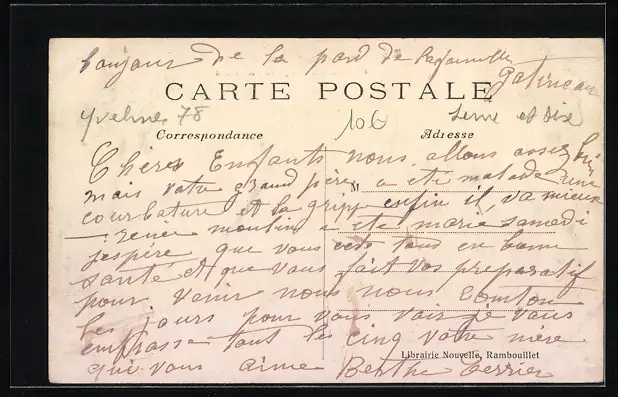 bonjour de la pard de la famille
Gatineau
CARTE POSTALE
Yvelines 78
106
Seine et Oise
Correspondance
Adresse
Chères Enfants nous allons assez bien
mais votre grand père a ete malade une
M
courbature et la grippe enfin il va mieux
Renée moulin a ete marie samedi
jespère que vous ests tous en bonne
sante et que vous fait vos preparatif
pour venir nous nous Comton
les jours pour vous voir je vous
embrasse tout les cinq votre mère
Librairie Nouvelle, Rambouillet
qui vous aime Berthe Terrier